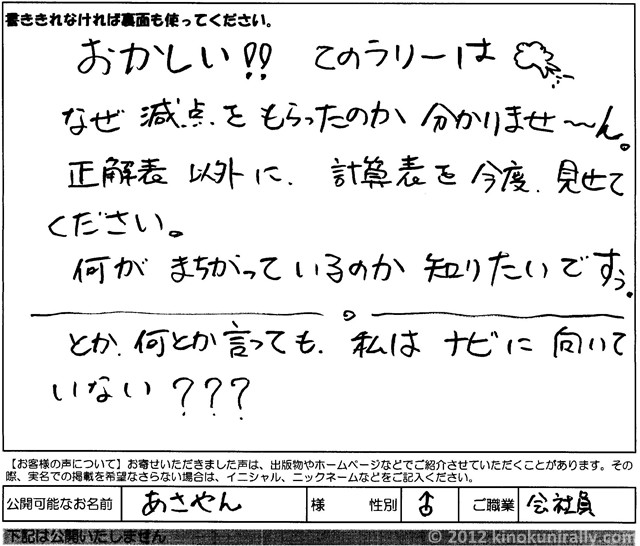 書ききれなければ裏面も使ってください。
おかしい!! このラリーは
なぜ 減点を もらったのか 分かりませ〜ん。
正解表 以外に、計算表を 今度、見せて
ください。
何が まちがっているのか 知りたいですぅ。
とか、何とか言っても、私は ナビに 向いて
いない ???
【お客様の声について】お寄せいただきました声は、出版物やホームページなどでご紹介させていただくことがあります。その
際、実名での掲載を希望なさらない場合は、イニシャル、ニックネームなどをご記入ください。
公開可能なお名前 あさやん 様 性別 ♂ ご職業 会社員
下記は公開いたしません
© 2012 kinokunirally.com